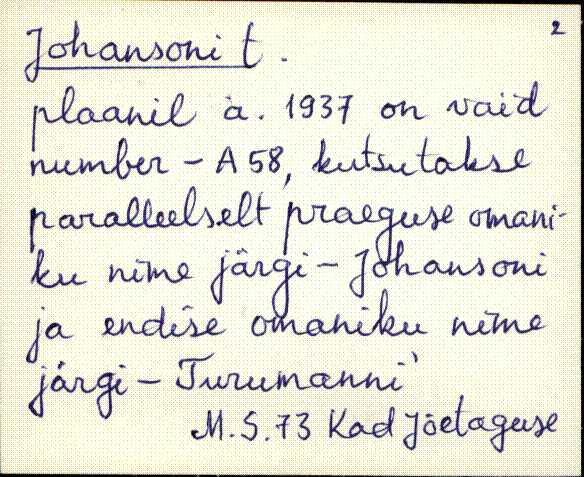 2
Johansoni t.
plaanil a. 1937 on vaid
number – A 58, kutsutakse
paralleelselt praeguse omani-
ku nime järgi – Johansoni
ja endise omaniku nime
järgi – Turumanni
M. S. 73 Kad Jõetaguse